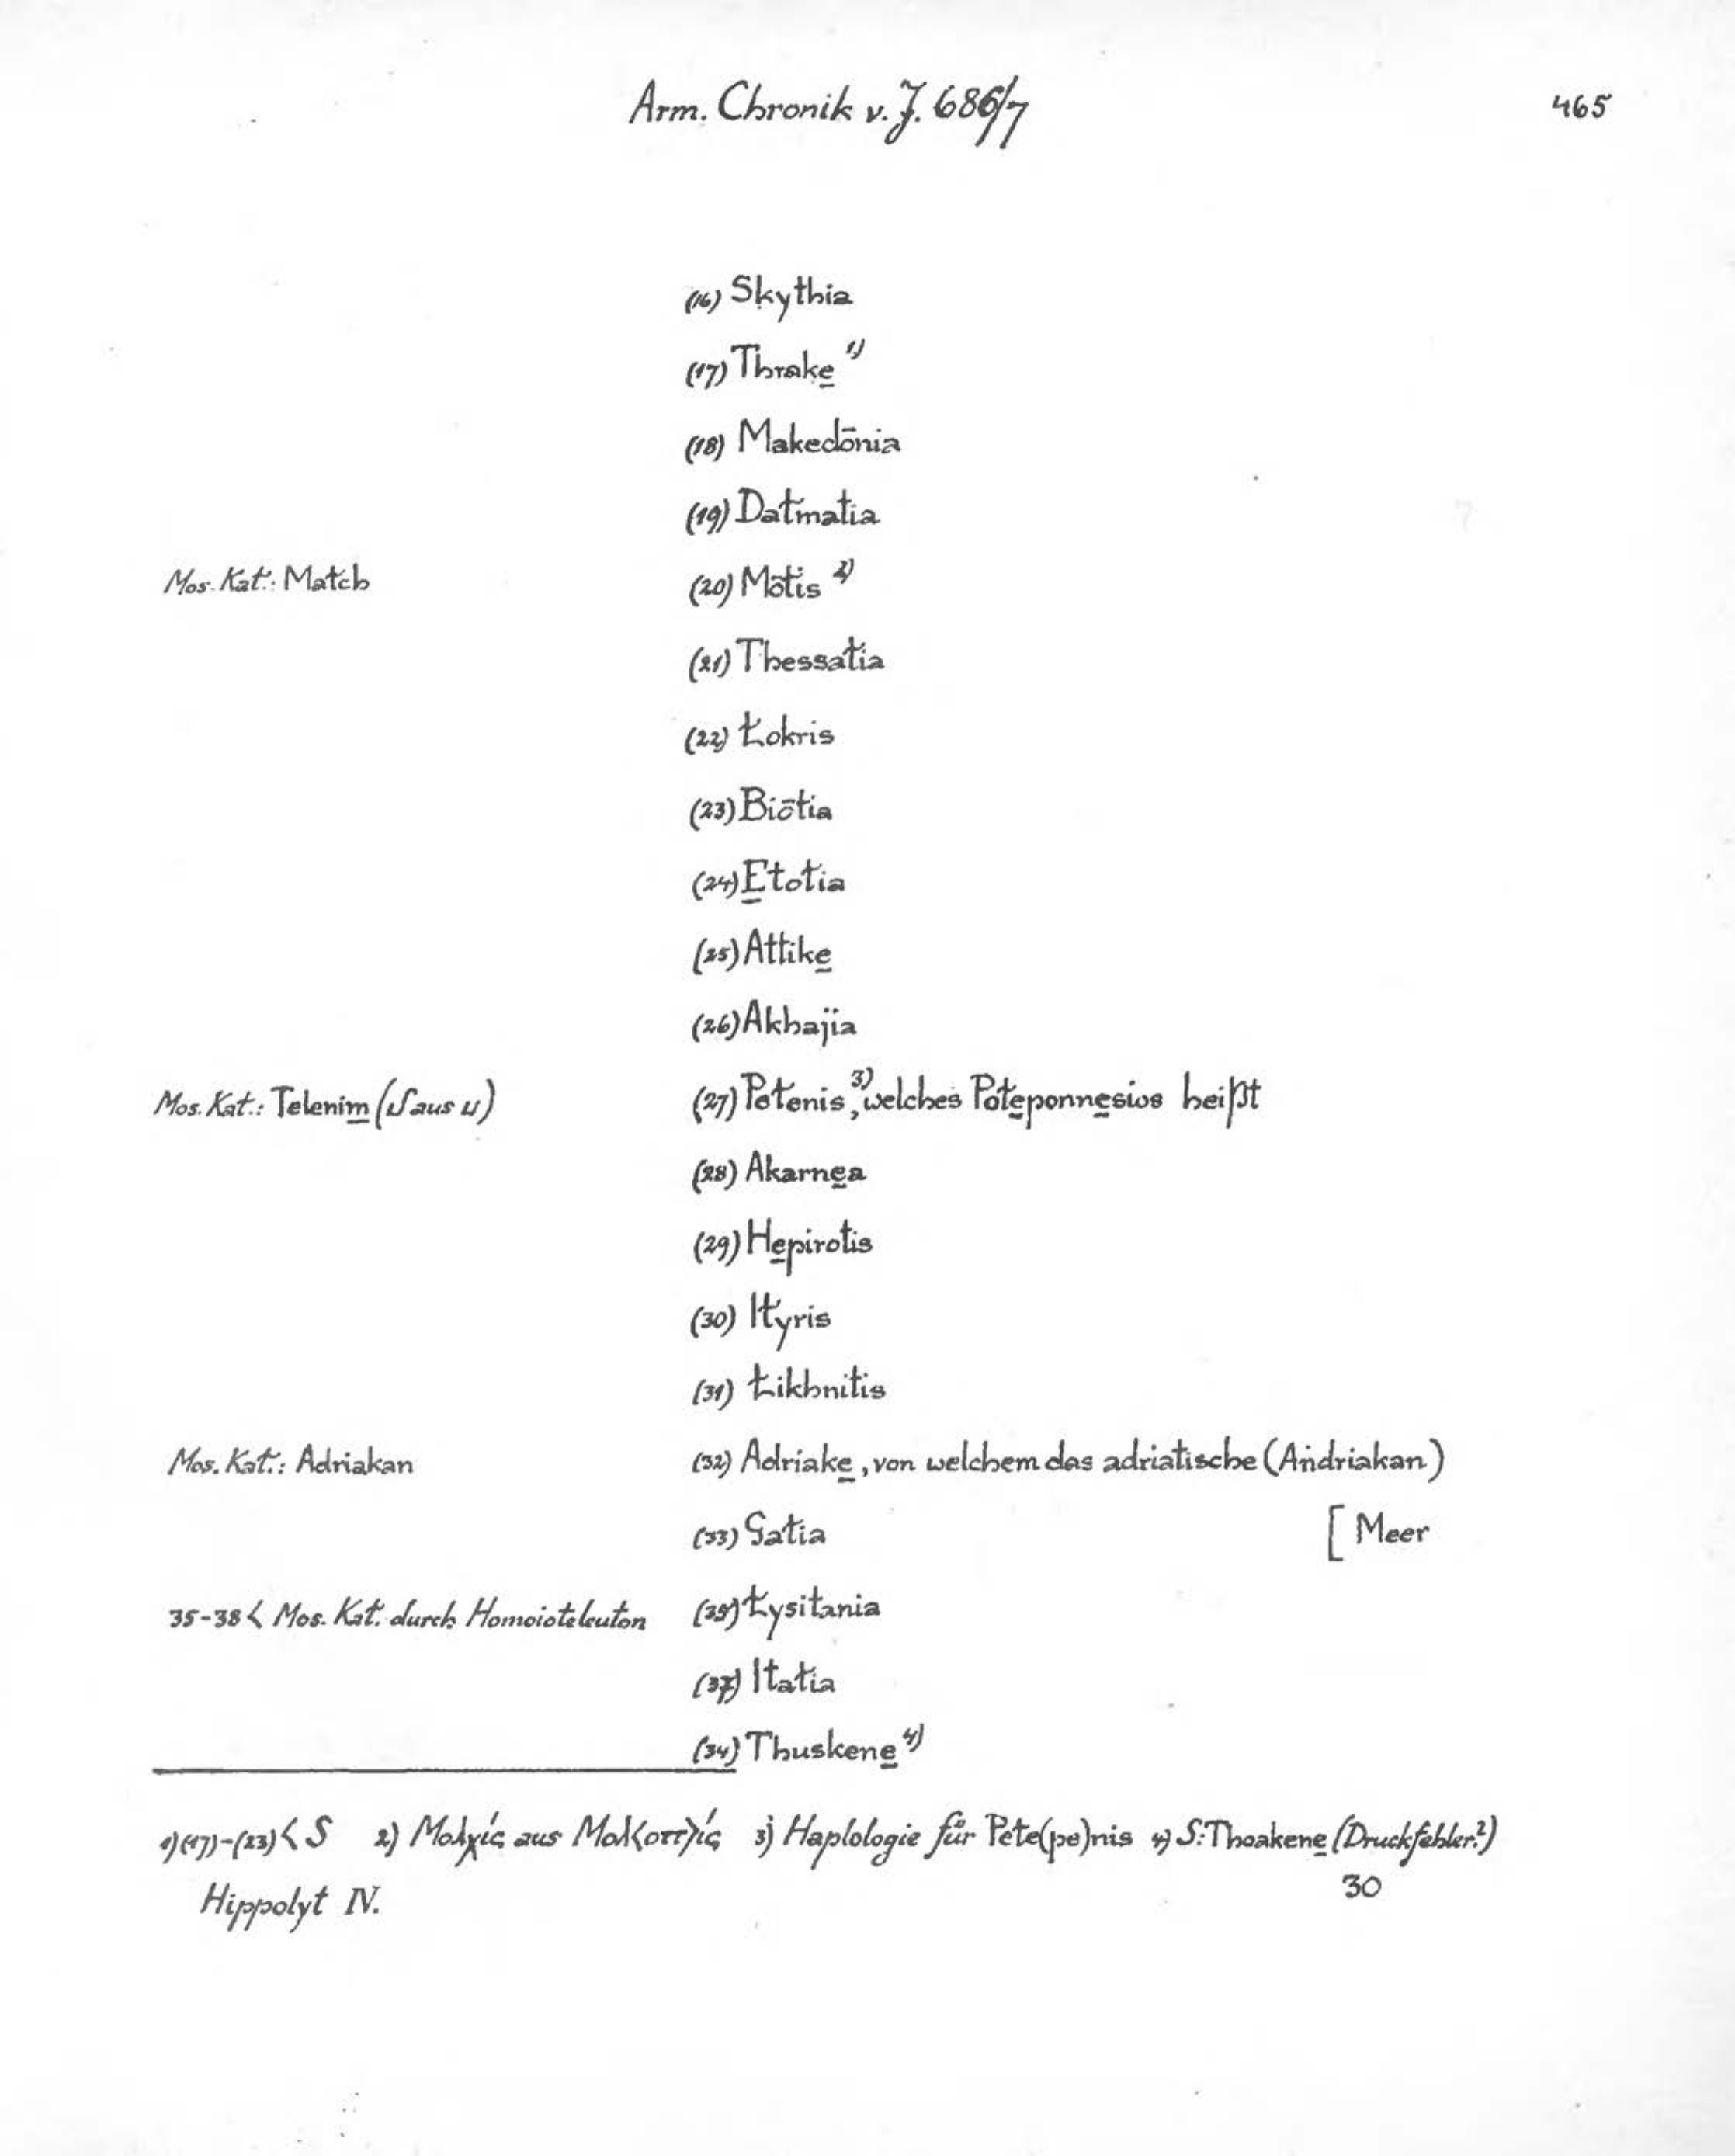 Arm. Chronik v. J. 686/7 465
(16) Skythia
(17) Thrake̱ ¹⁾
(18) Makedōnia
(19) Dałmatia
Mos. Kał.: Match (20) Mōłis ²⁾
(21) Thessałia
(22) Łokris
(23) Biōtia
(24) E̱tołia
(25) Attike̱
(26) Akhajia
Mos. Kał.: Telenim̱ (մ aus ն) (27) Pełenis,³⁾ welches Połe̱ponne̱sios heißt
(28) Akarne̱a
(29) He̱pirotis
(30) Iłyris
(31) Łikhnitis
Mos. Kał.: Adriakan (32) Adriake̱, von welchem das adriatische (Andriakan)
(33) Gałia [ Meer
35-38 < Mos. Kał. durch Homoioteleuton (35) Łysitania
(37) Itałia
(34) Thuskene̱ ⁴⁾
1) (17)-(23) < S 2) Μολχίς aus Μολ<οττ>ίς 3) Haplologie für Pete(pe)nis 4) S: Thoakene̱ (Druckfehler?)
Hippolyt IV. 30